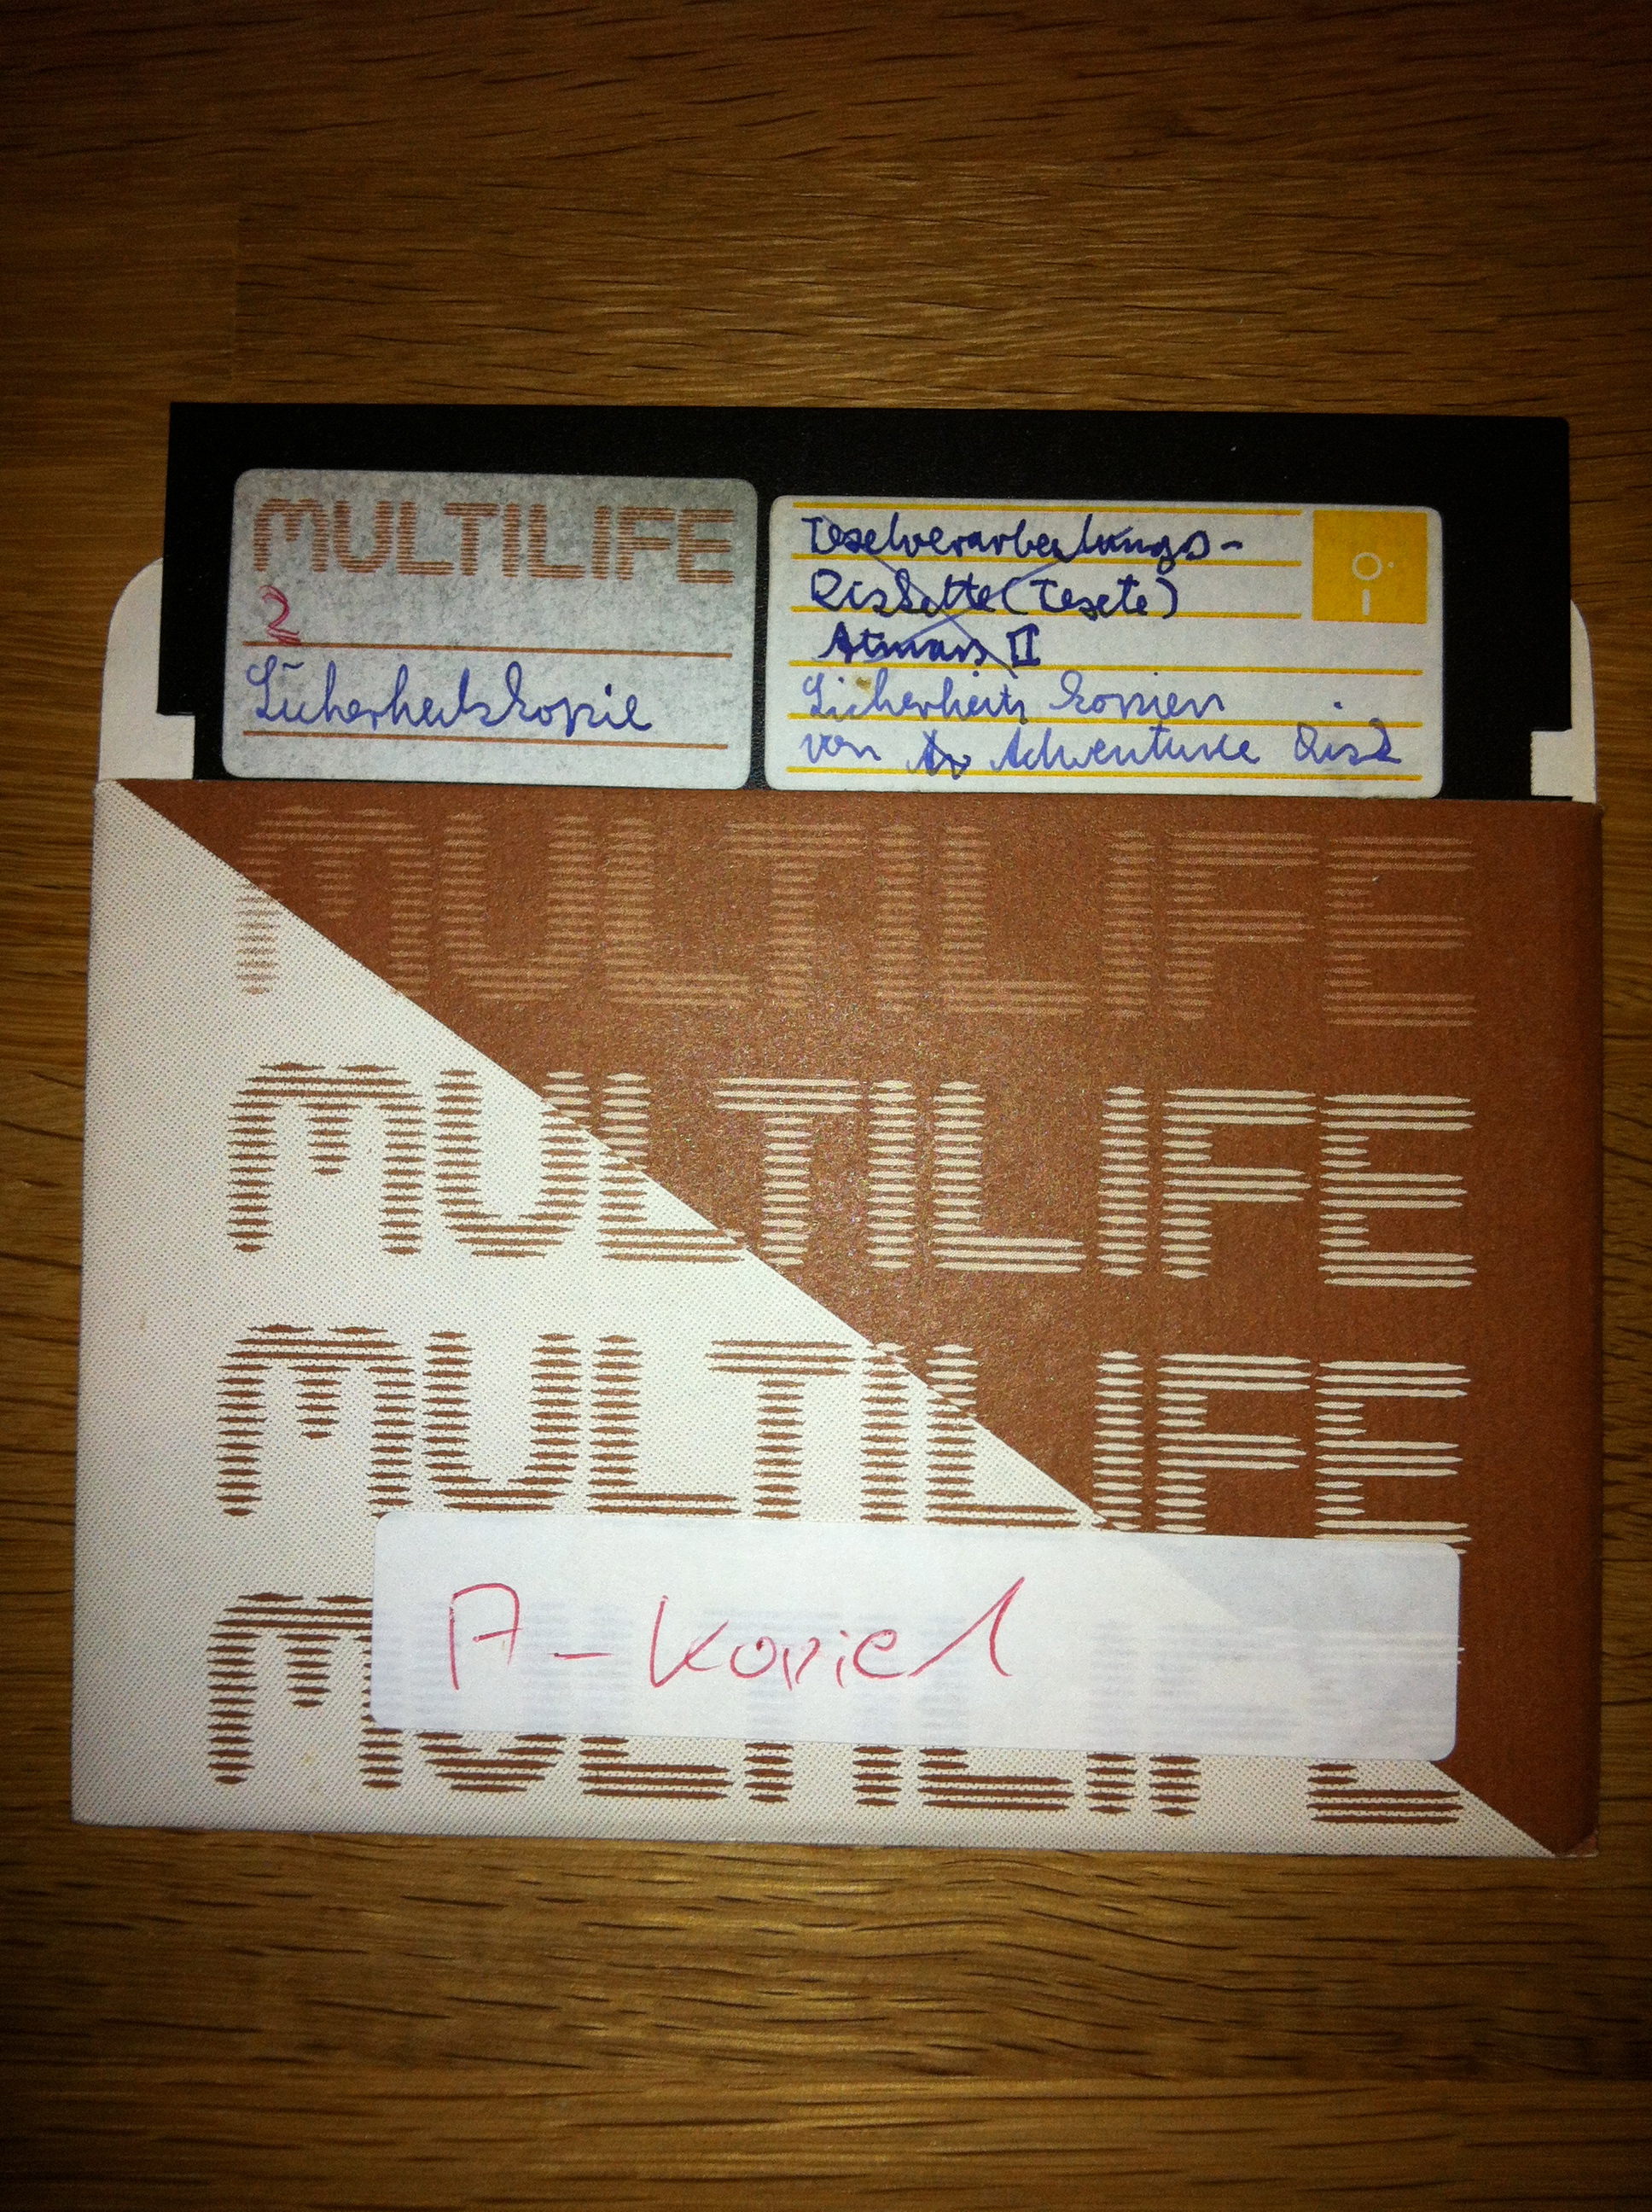 MULTILIFE
2
Sicherheitskopie
Textverarbeitungs-
Diskette (Texte)
II
Sicherheits kopien
von Av Adventure Disk
MULTILIFE
MULTILIFE
MULTILIFE
MULTILIFE
A-Kopie 1